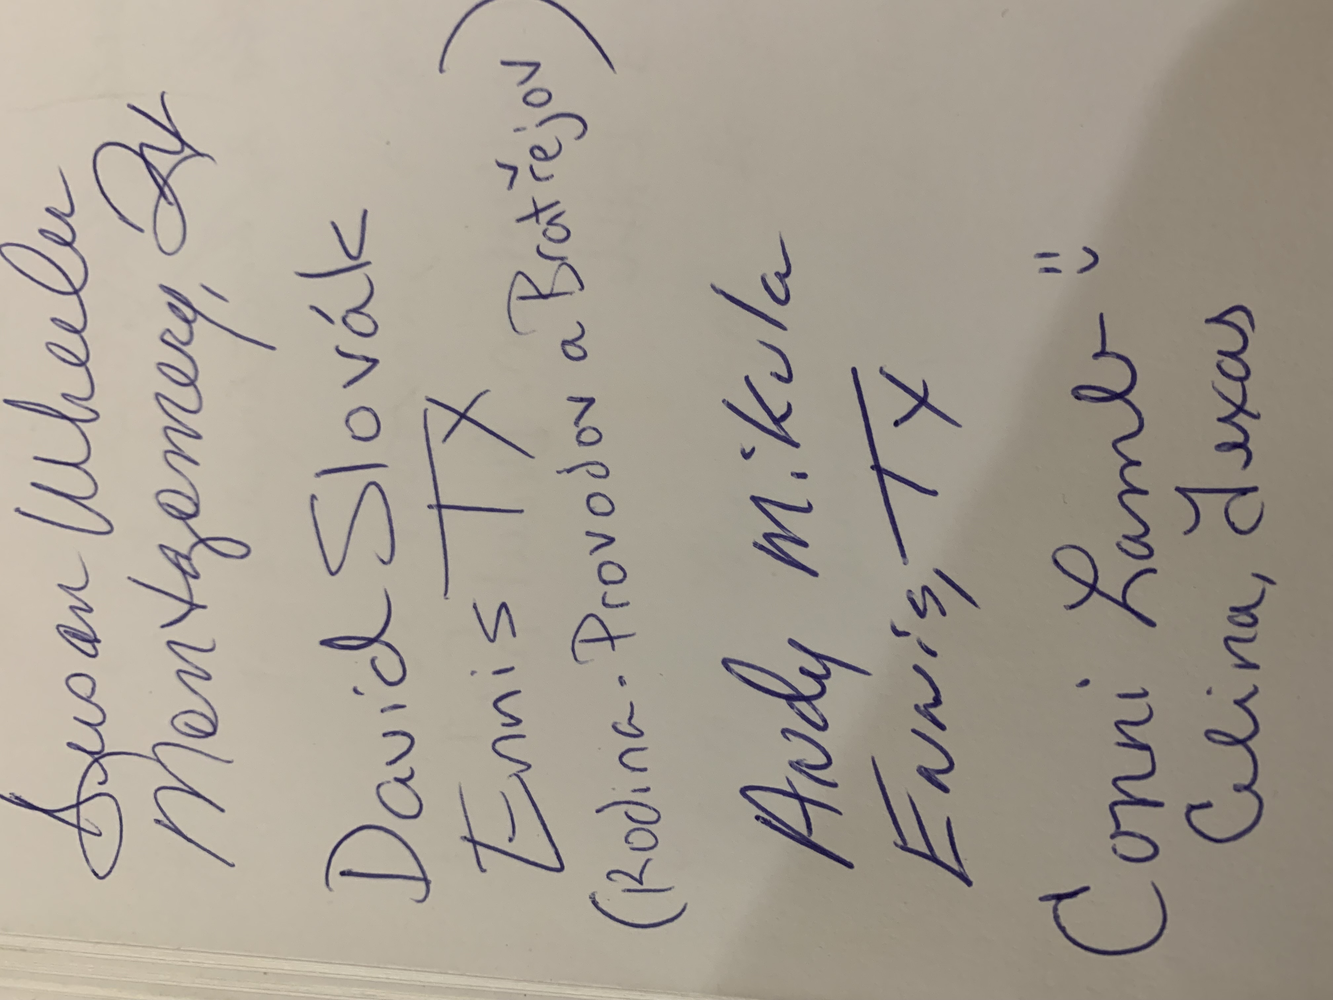 Susan Wheeler
Montgomery, TX
David Slovák
Ennis TX
(Rodina - Provodov a Bratřejov)
Andy Mikula
Ennis, TX
Conni Lamb
Celina, Texas